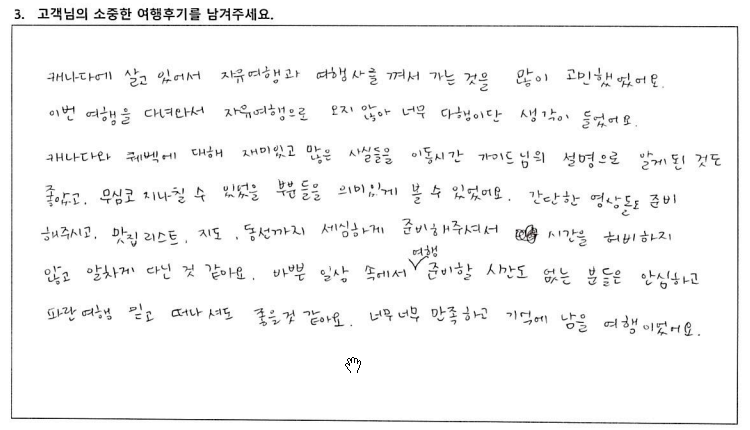 3. 고객님의 소중한 여행후기를 남겨주세요.
캐나다에 살고 있어서 자유여행과 여행사를 껴서 가는 것을 많이 고민했었어요.
이번 여행을 다녀와서 자유여행으로 오지 않아 너무 다행이단 생각이 들었어요.
캐나다와 퀘벡에 대해 재미있고 많은 사실들을 이동시간 가이드님의 설명으로 알게된 것도
좋았고, 무심코 지나칠 수 있었을 부분들을 의미있게 볼 수 있었어요. 간단한 영상들도 준비
해주시고, 맛집리스트, 지도, 동선까지 세심하게 준비해주셔서 시간을 허비하지
않고 알차게 다닌 것 같아요. 바쁜 일상 속에서 여행 준비할 시간도 없는 분들은 안심하고
파란여행 믿고 떠나셔도 좋을것 같아요. 너무너무 만족하고 기억에 남을 여행이었어요.